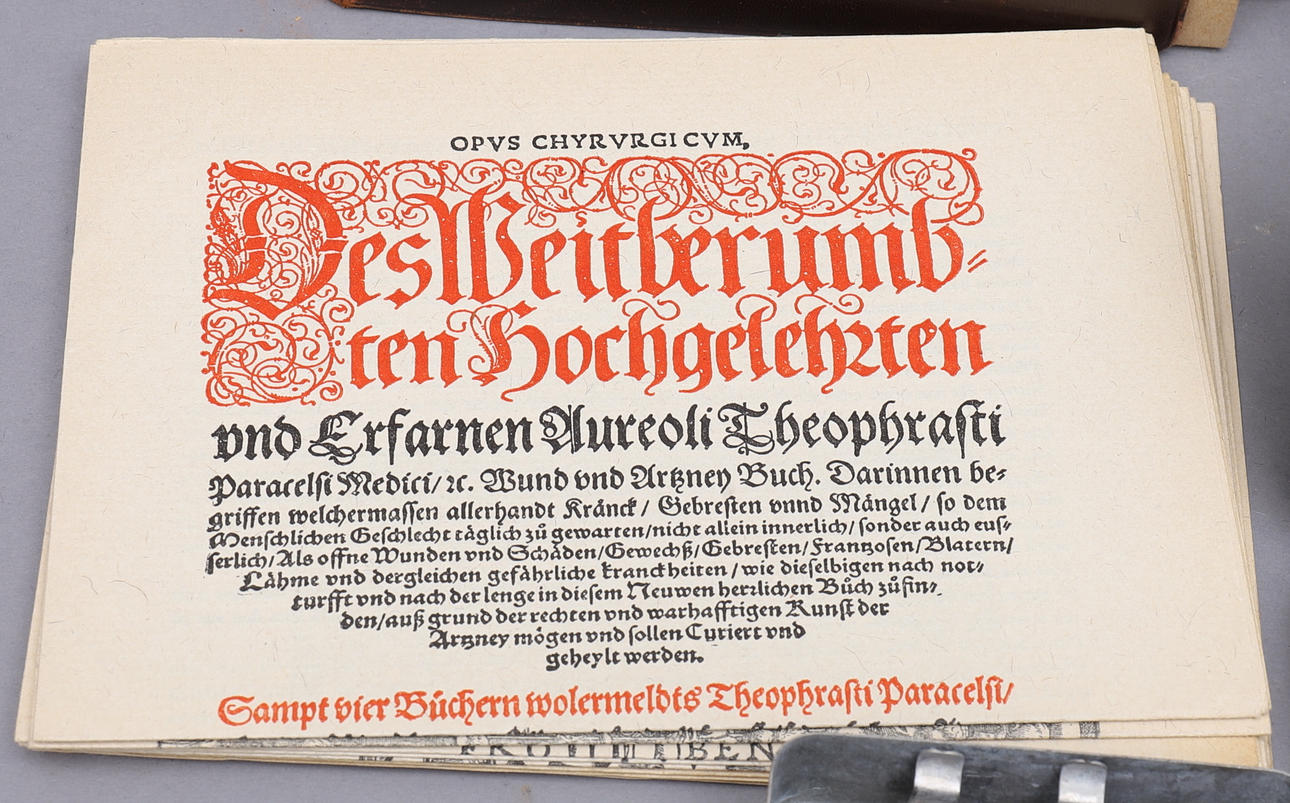 OPVS CHYRVRGICVM,
Des Weitberumb⸗
ten Hochgelehrten
vnd Erfarnen Aureoli Theophrasti
Paracelsi Medici/ ꝛc. Wund vnd Artzney Buch. Darinnen be⸗
griffen welchermassen allerhandt Kränck/ Gebresten vnnd Mängel/ so dem
Menschlichen Geschlecht täglich zů gewarten/nicht allein innerlich/ sonder auch eus⸗
serlich/Als offne Wunden vnd Schäden/Gewechß/Gebresten/Frantzosen/Blatern/
Lähme vnd dergleichen gefährliche kranckheiten/wie dieselbigen nach not⸗
turfft vnd nach der lenge in diesem Neuwen herrlichen Bůch zůfin⸗
den/auß grund der rechten vnd warhafftigen Kunst der
Artzney mögen vnd sollen Curiert vnd
geheylt werden.
Sampt vier Büchern wolermeldts Theophrasti Paracelsi/